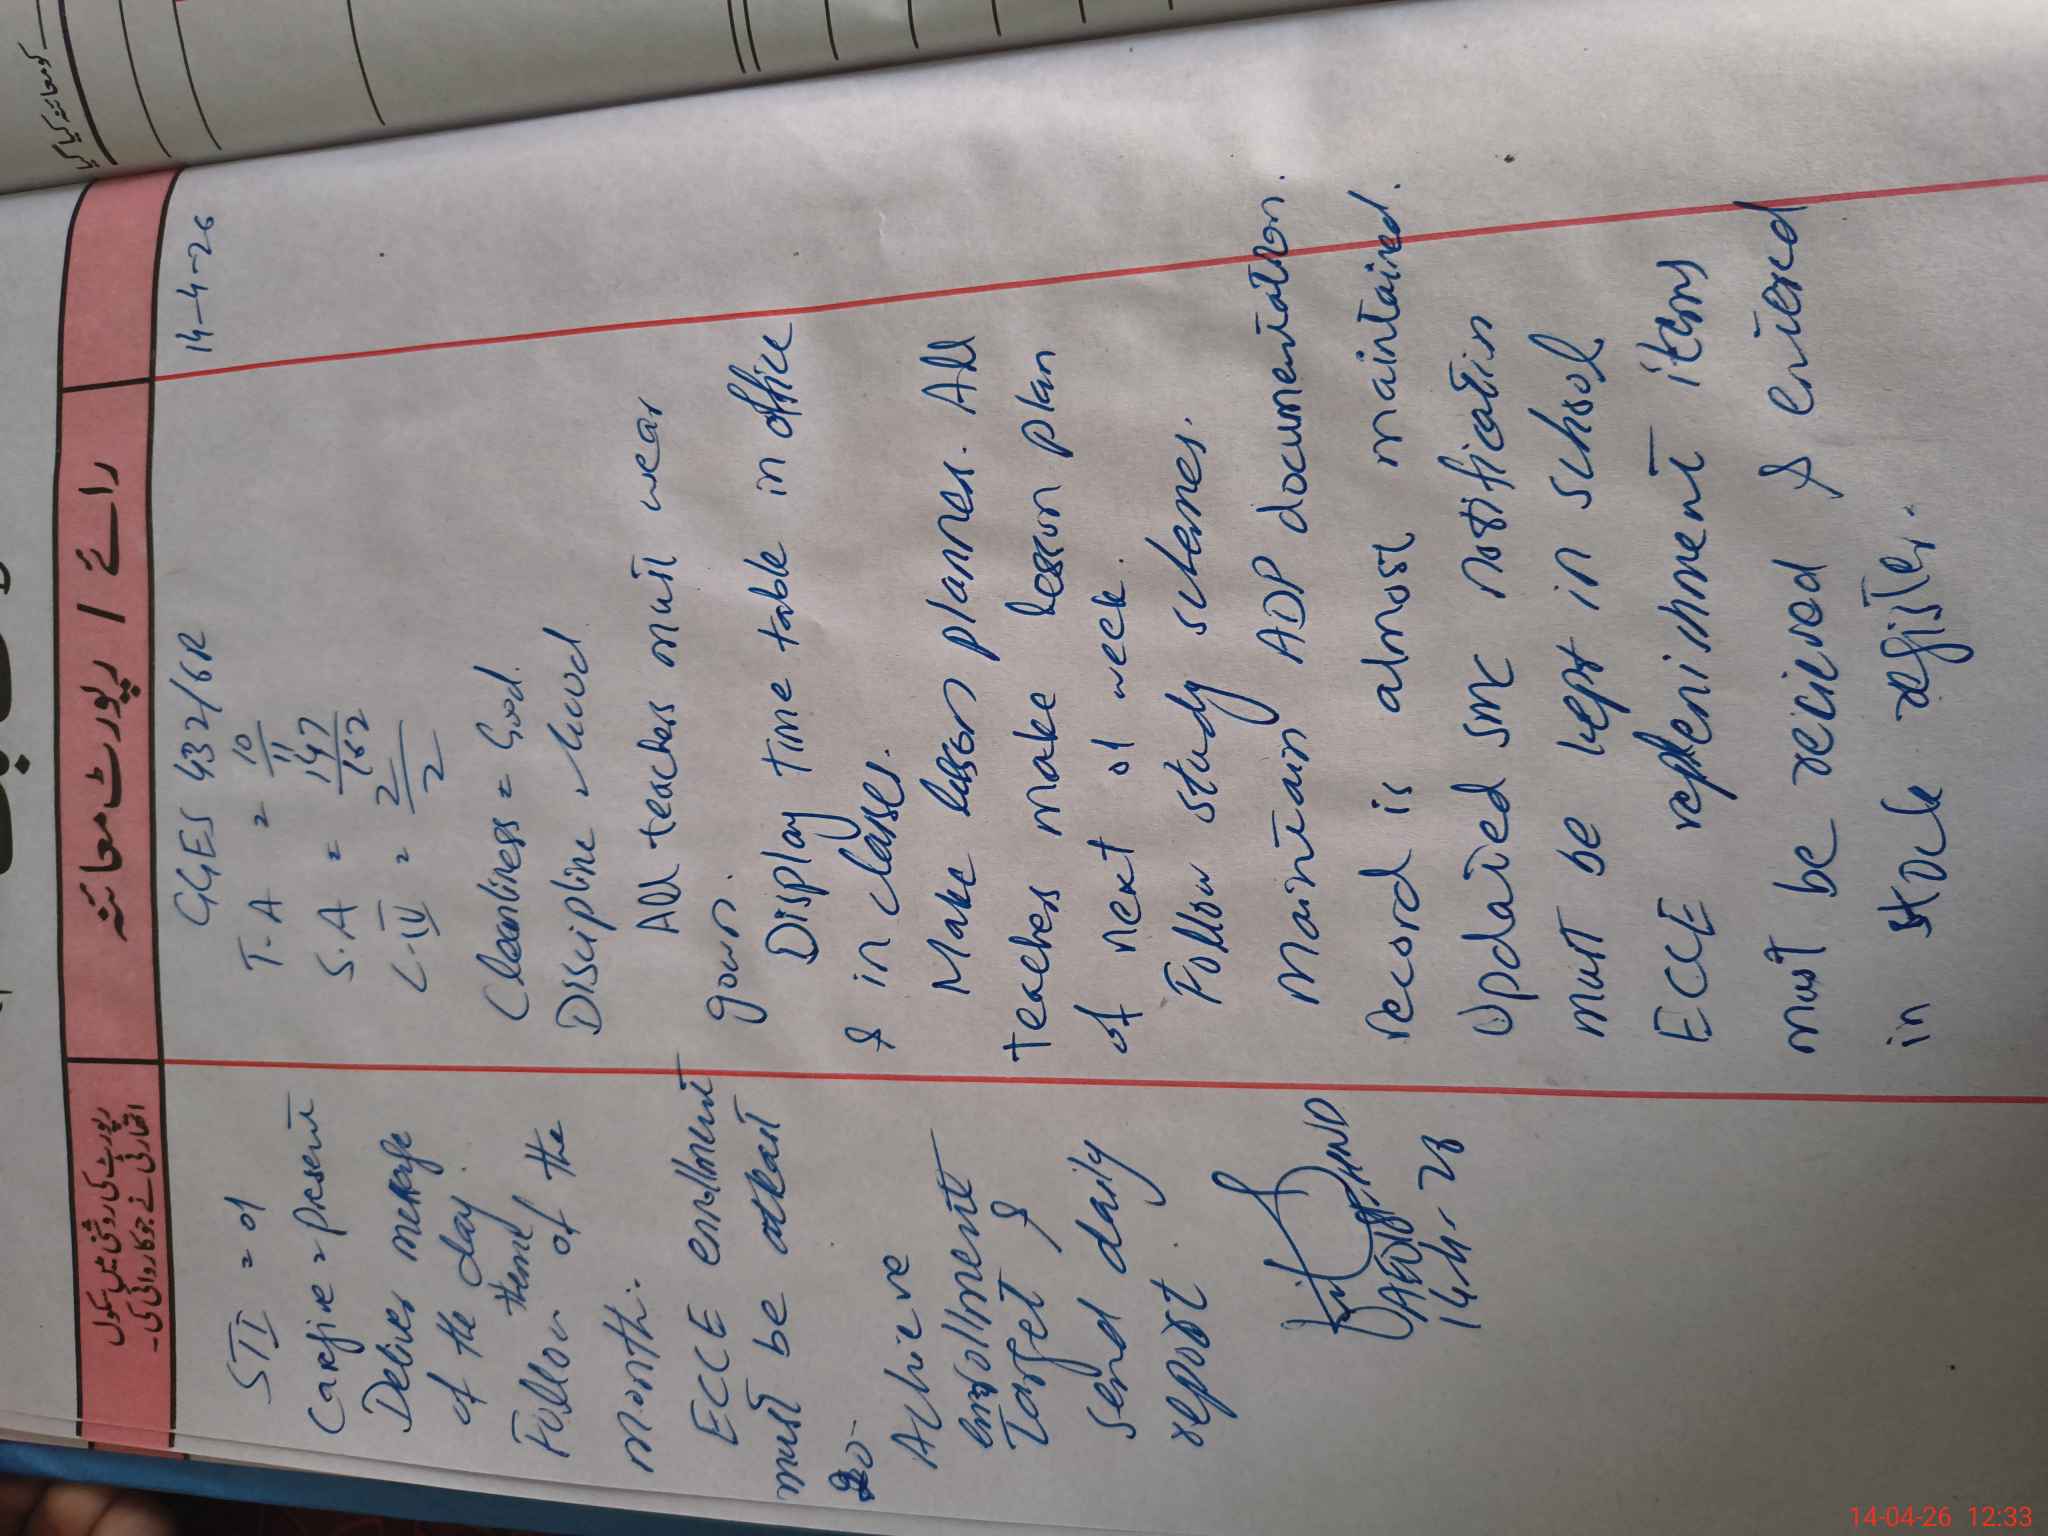 رائے / رپورٹ معائنہ
رپورٹ کی روشنی میں سکول
اتھارٹی نے جو کاروائی کی۔
کو معائنہ کیا گیا
14-4-26
GGES 432/6R
T.A = 10/11
S.A = 147/162
C-IV = 2/2
Cleanliness = Good.
Discipline = Good
All teachers must wear
gown.
Display time table in office
& in classes.
Make lesson planner. All
teachers make lesson plan
of next of week.
Follow study schemes.
Maintain ADP documentation.
record is almost maintained.
Updated SMC notification
must be kept in school
ECCE replenishment items
must be recieved & entered
in stock register.
STI = 01
Caregive = Present
Deliver message
of the day
Follow theme of the
month.
ECCE enrollment
must be atleast
20.
Achieve
enrollment
Target &
send daily
report.
14-04-26 12:33